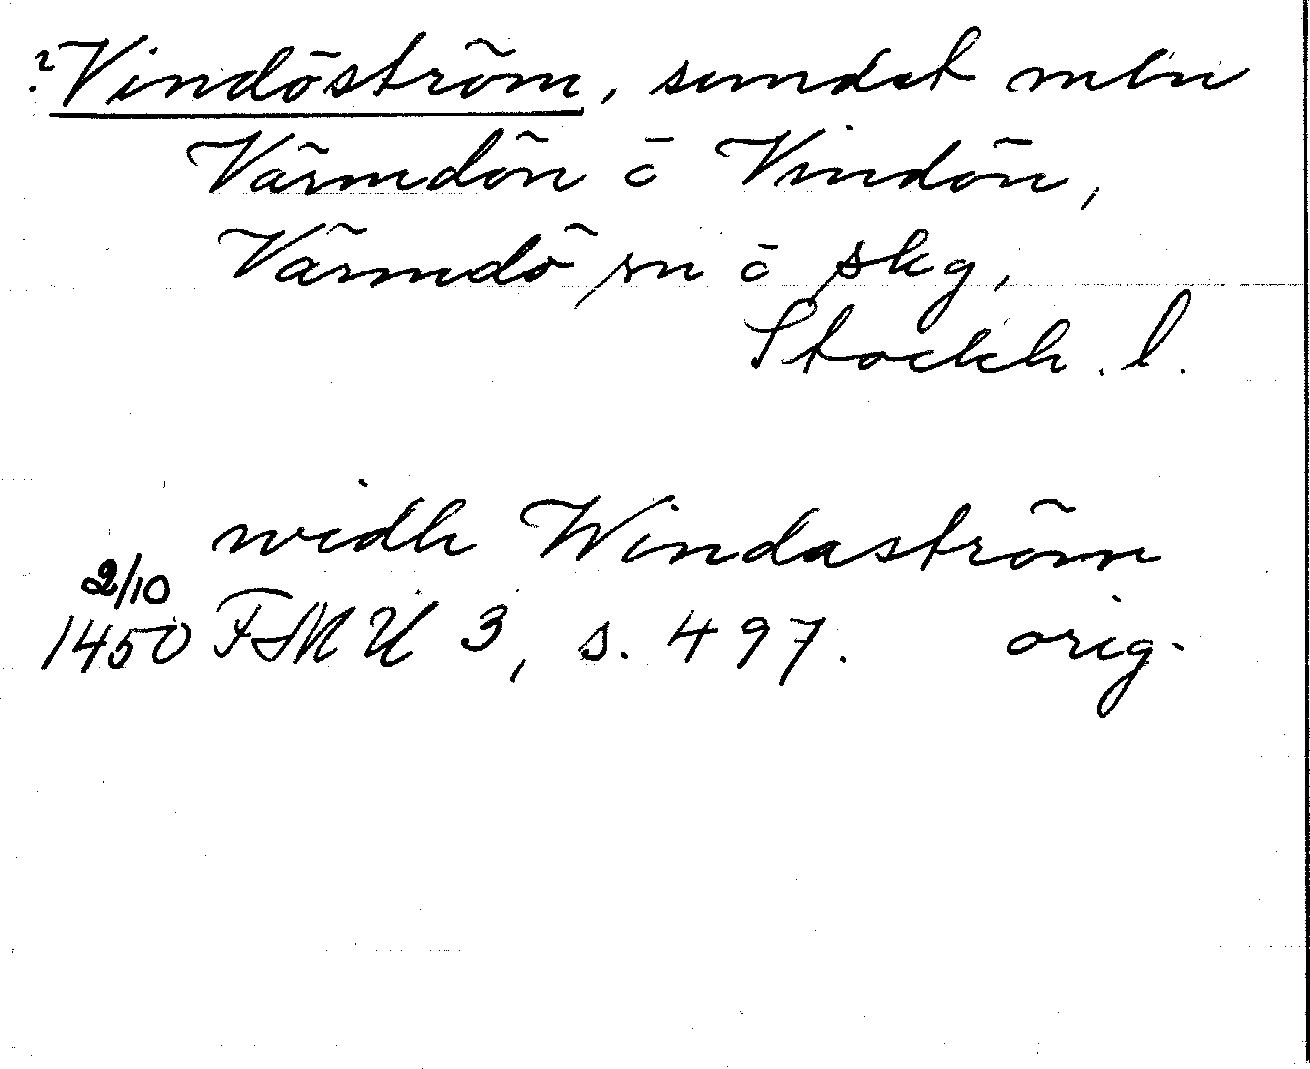 ? Vindöström, sundet mln
Värmdön o Vindön,
Värmdö sn o skg,
Stockh. l.
widh Windaström
2/10
1450 FMU 3, s. 497. orig.